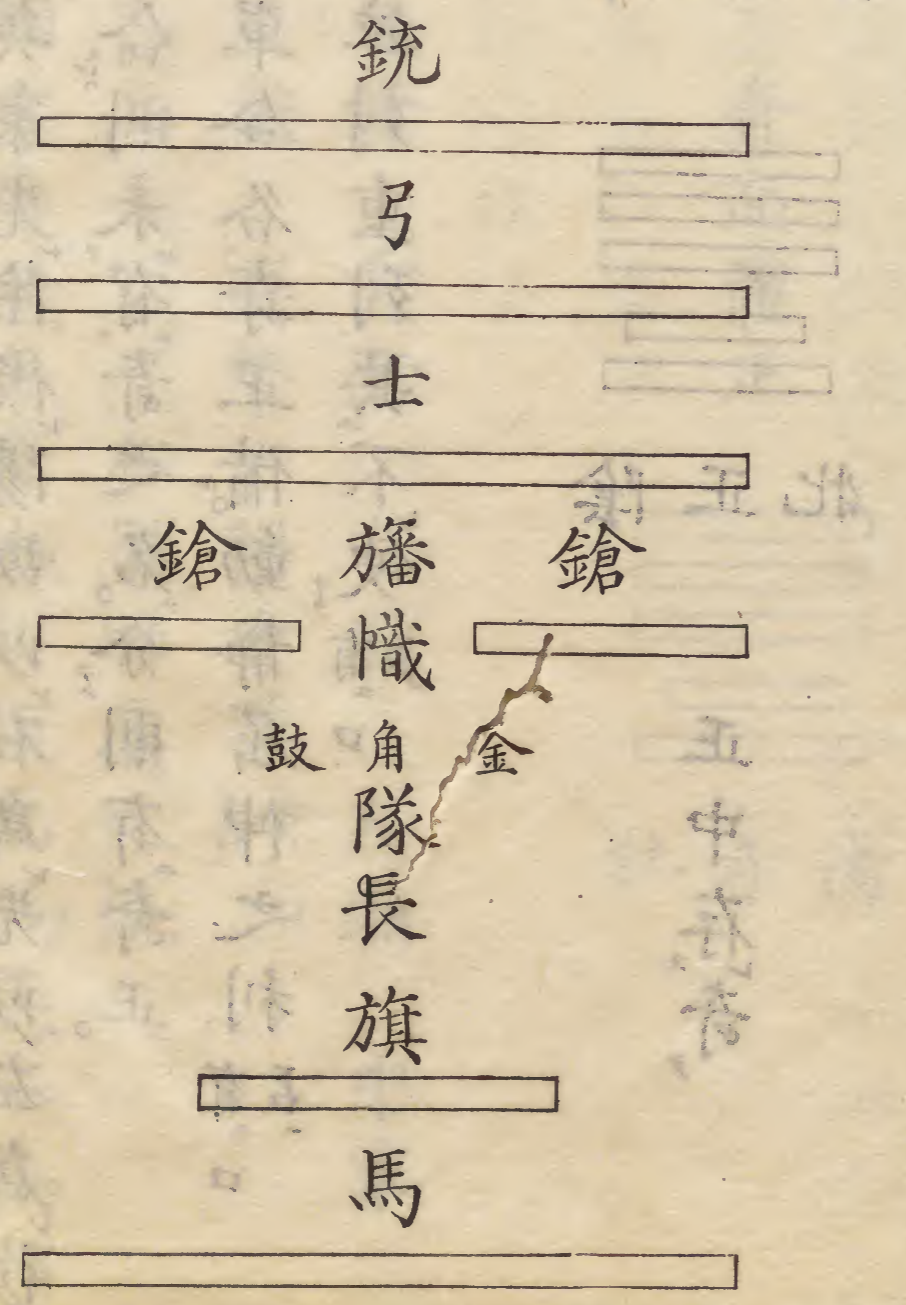 銃
弓
士
鎗 旛 鎗
幟
鼓 角 金
隊
長
旗
馬